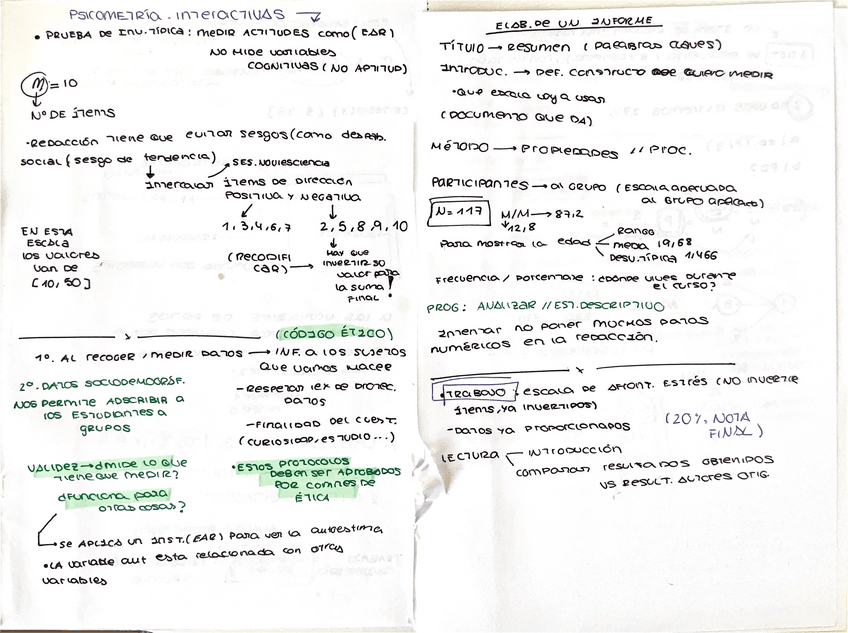 PSICOMETRÍA. INTERACTIVAS
• PRUEBA DE INV. TÍPICA: MEDIR ACTITUDES COMO (EAR)
NO MIDE VARIABLES
COGNITIVAS (NO APTITUD)
M = 10
Nº DE ÍTEMS
• REDACCIÓN TIENE QUE EVITAR SESGOS (COMO
SOCIAL (SESGO DE TENDENCIA)
SES. NOVIESCIENCIA
INTERCALAR ÍTEMS DE DIRECCIÓN
POSITIVA Y NEGATIVA
1, 3, 4, 6, 7 2, 5, 8, 9, 10
EN ESTA
ESCALA
LOS VALORES
VAN DE
[10, 50]
(RECODIFI
CAR)
HAY QUE
INVERTIR SU
VALOR PARA
LA SUMA
FINAL!
(CÓDIGO ÉTICO)
1º. AL RECOGER / MEDIR DATOS → INF. A LOS SUJETOS
QUE VAMOS HACER
2º. DATOS SOCIODEMOGRÁF.
NOS PERMITE ADSCRIBIR A
LOS ESTUDIANTES A
GRUPOS
- RESPETAR LEY DE PROTEC.
DATOS
- FINALIDAD DEL CUEST.
(CURIOSIDAD, ESTUDIO...)
VALIDEZ → ¿MIDE LO QUE
TIENE QUE MEDIR?
¿FUNCIONA PARA
OTRAS COSAS?
• ESTOS PROTOCOLOS
DEBEN SER APROBADOS
POR COMITES DE
ÉTICA
SE APLICA UN INST. (EAR) PARA VER LA AUTOESTIMA
• LA VARIABLE AUT ESTA RELACIONADA CON OTRAS
VARIABLES
ELAB. DE UN INFORME
TÍTULO → RESUMEN (PALABRAS CLAVES)
INTRODUC. → DEF. CONSTRUCTO QUE QUIERO MEDIR
• QUE ESCALA VOY A USAR
(DOCUMENTO QUE DA)
MÉTODO → PROPIEDADES // PROC.
PARTICIPANTES → AL GRUPO (ESCALA ADECUADA
AL GRUPO APLICADO)
N = 117
M/M → 87,2
12,8
PARA MOSTRAR LA EDAD
RANGO
MEDIA 19,68
DESV. TÍPICA 1,466
FRECUENCIA / PORCENTAJE: ¿DÓNDE VIVES DURANTE
EL CURSO?
PROG: ANALIZAR // EST. DESCRIPTIVO
INTENTAR NO PONER MUCHOS DATOS
NUMÉRICOS EN LA REDACCIÓN.
• TRABAJO: ESCALA DE AFRONT. ESTRÉS (NO INVERTIR
ÍTEMS, YA INVERTIDOS)
- DATOS YA PROPORCIONADOS
(20% NOTA
FINAL)
LECTURA
INTRODUCCIÓN
COMPARAR RESULTADOS OBTENIDOS
VS RESULT. AUTORES ORIG.